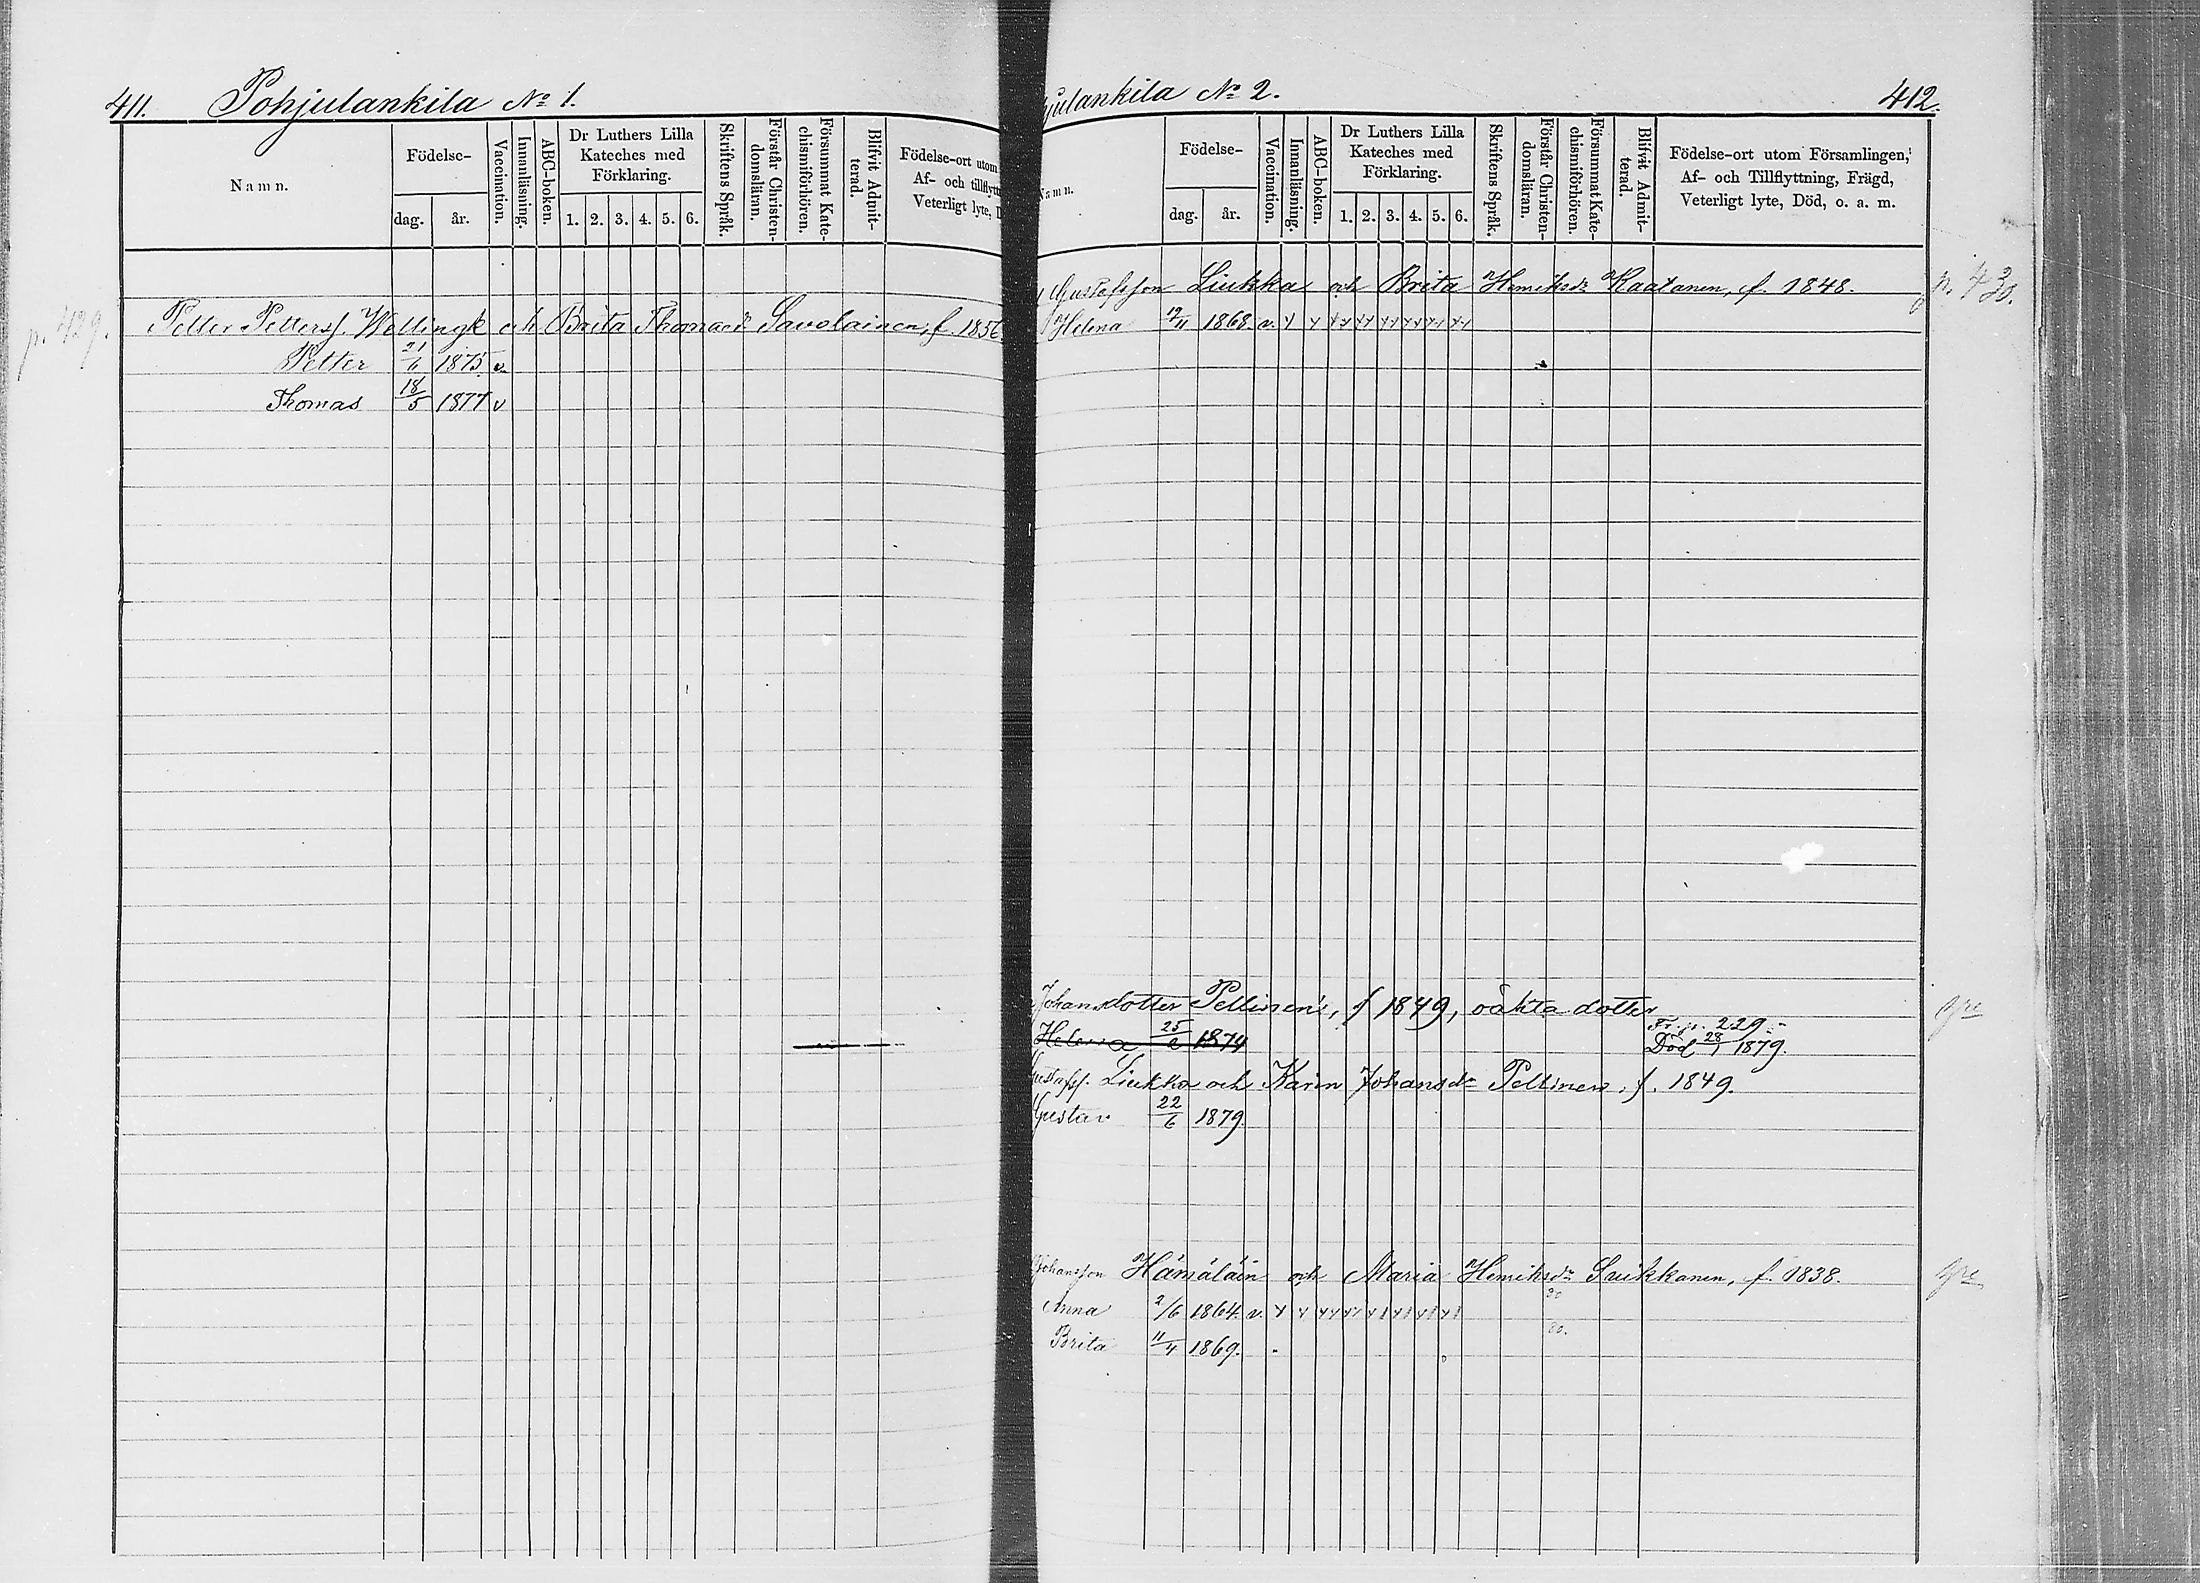 411. Pohjulankila No 1.
Namn.
Födelse-
dag. år.
Vaccination.
Innanläsning.
ABC-boken.
Dr Luthers Lilla Kateches med Förklaring.
1. 2. 3. 4. 5. 6.
Skriftens Språk.
Förstår Christen-domsläran.
Försummat Kate-chismiförhören.
Blifvit Admit-terad.
Födelse-ort utom
Af- och tillflytt
Veterligt lyte, D
p. 429.
Petter Petterss. Wellingk och Brita Thomaed:r Savolainen, f. 1856
Petter 21/6 1875 v.
Thomas 18/5 1877 v
julankila No 2. 412.
Namn.
Födelse-
dag. år.
Vaccination.
Innanläsning.
ABC-boken.
Dr Luthers Lilla Kateches med Förklaring.
1. 2. 3. 4. 5. 6.
Skriftens Språk.
Förstår Christen-domsläran.
Försummat Kate-chismiförhören.
Blifvit Admit-terad.
Födelse-ort utom Församlingen,
Af- och Tillflyttning, Frägd,
Veterligt lyte, Död, o. a. m.
Gustafsson Liukka och Brita Henriksdr Kaatanen, f. 1848. p. 430.
Helena 12/11 1868. v.
Johansdotter Pellinen's, f 1849, oäkta dotter
Fr. p. 229.
Helena 25/2 1874 Död 28/1 1879.
Gustafss. Liukka och Karin Johansdr Pellinen, f. 1849.
Gustav 22/6 1879
Johansson Hämäläin och Maria Henriksdr Suikkanen, f. 1838.
Anna 2/6 1864. v.
Brita 11/4 1869.